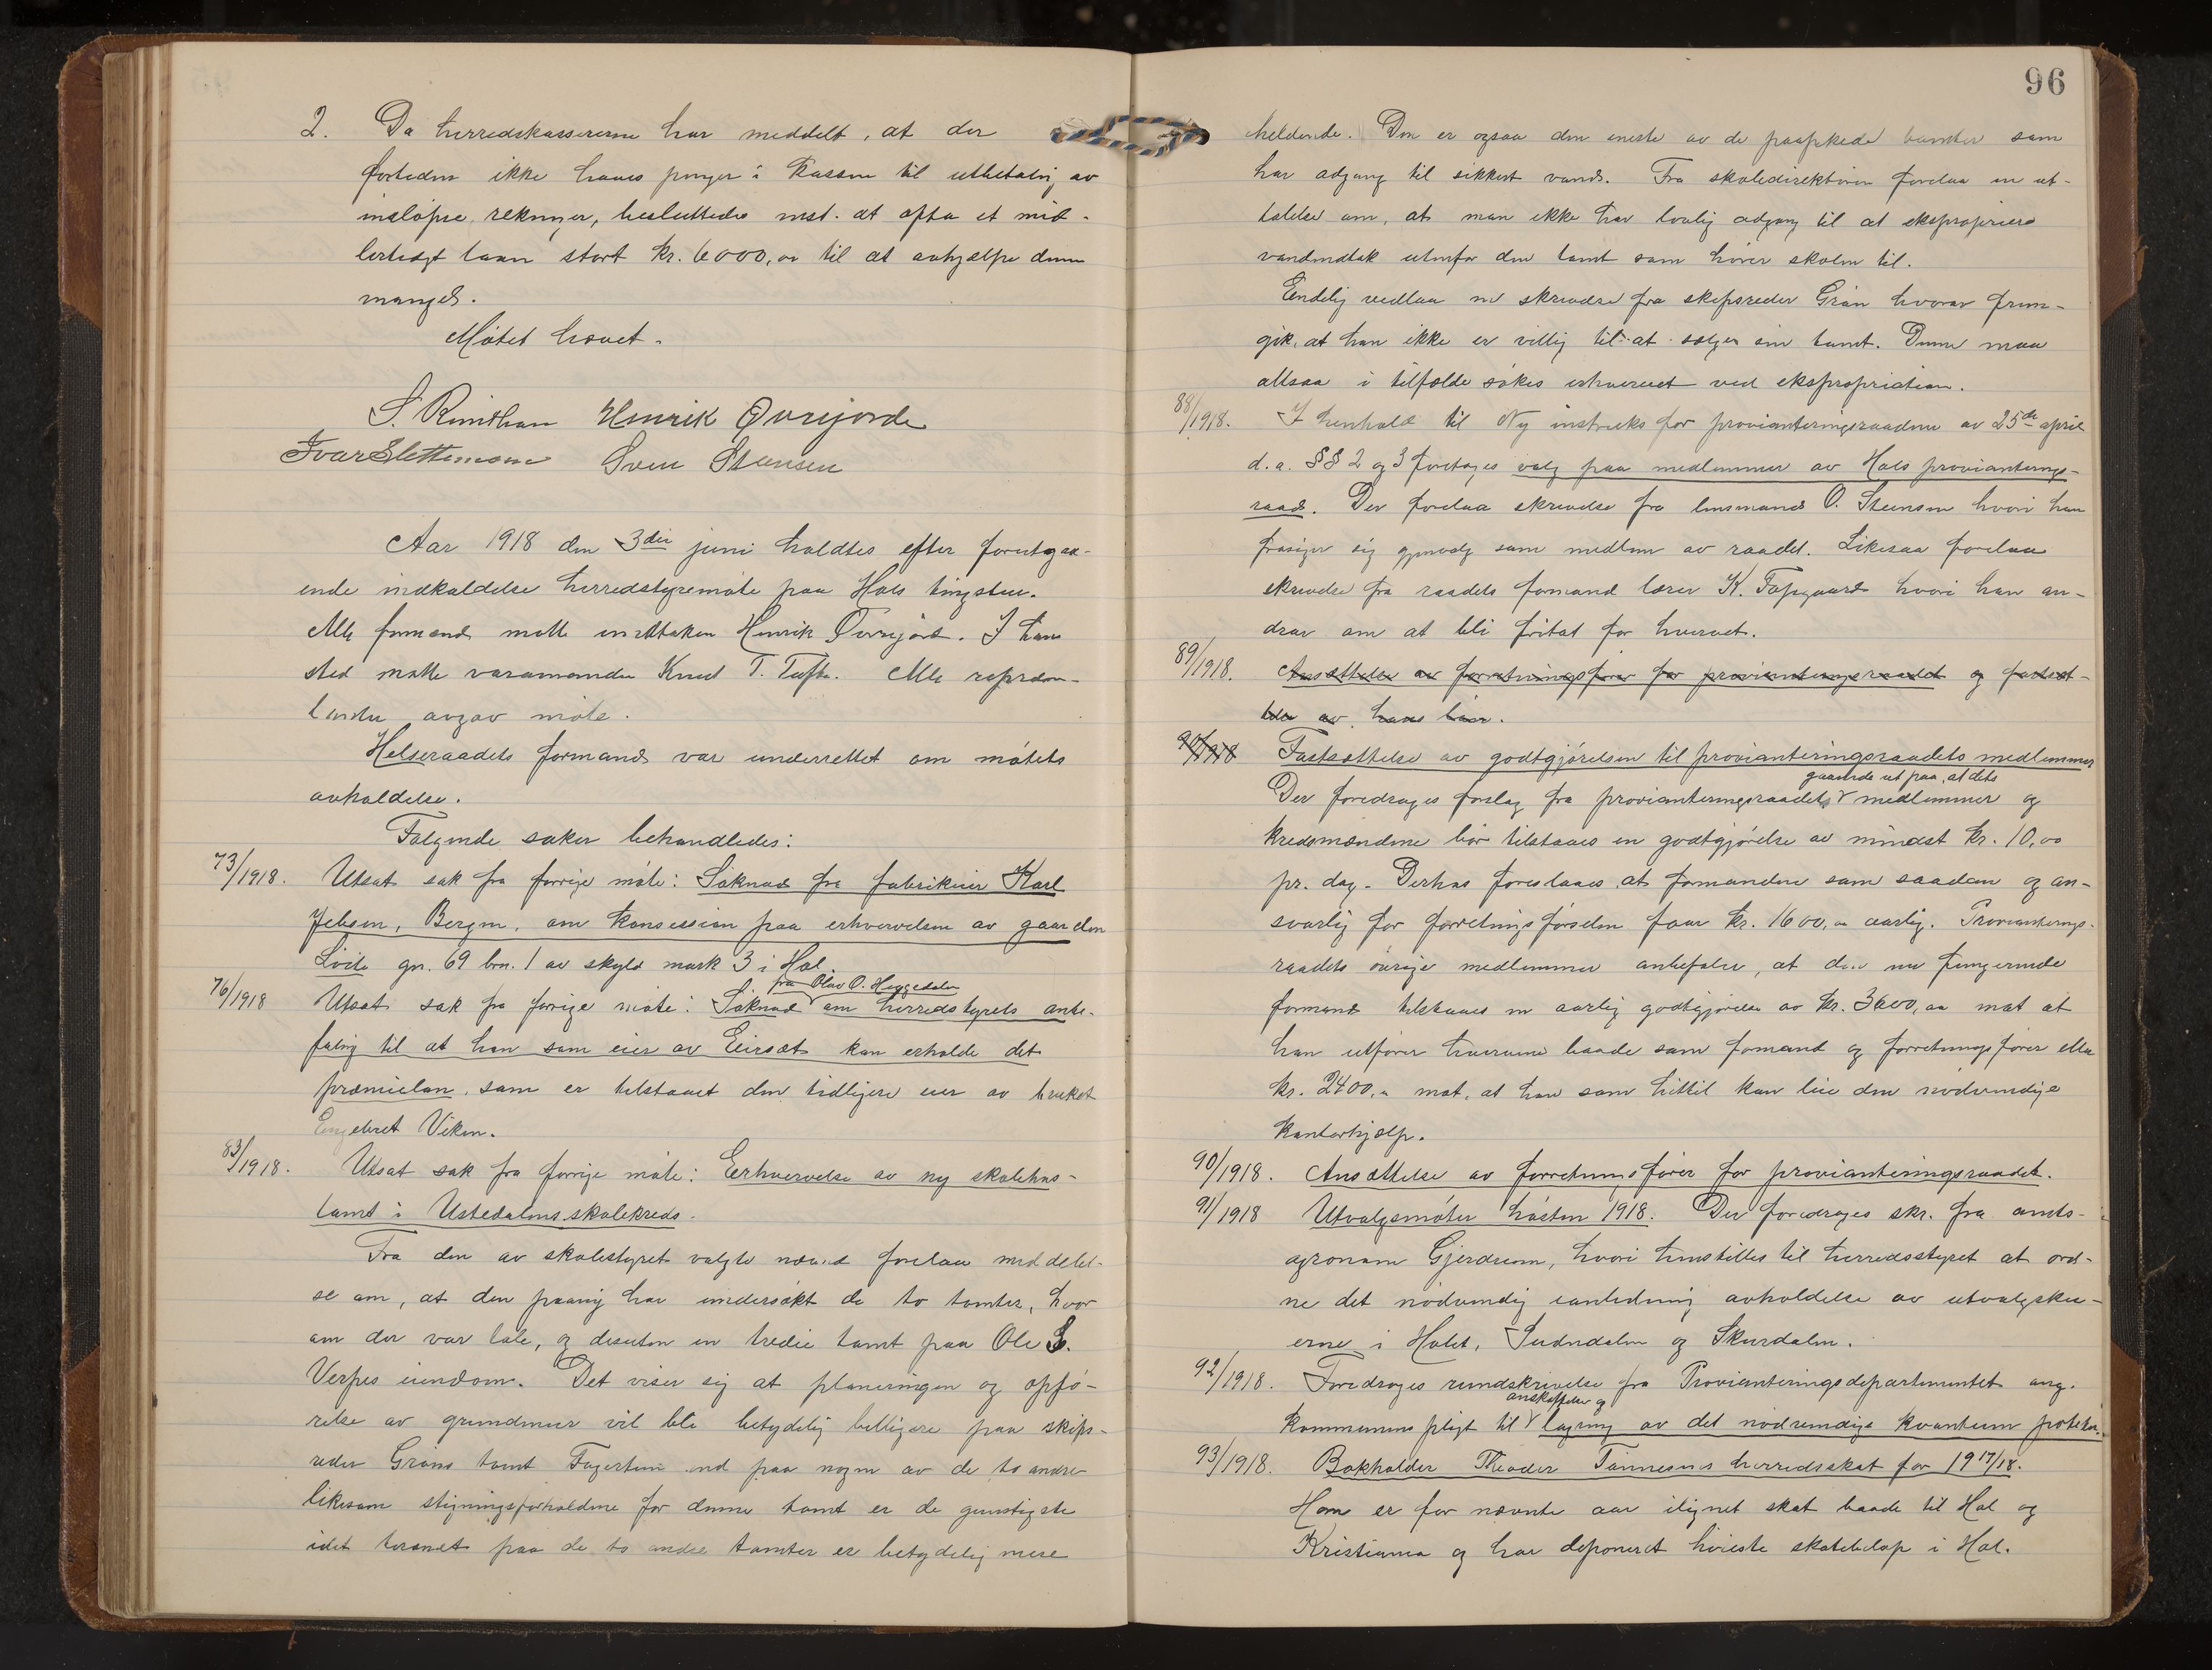 2. Da herredskassereren har meddelt, at der
fortiden ikke haves penger i kassen til utbetaling av
indløpne rekninger, besluttedes enst. at opta et mid-
lertidigt laan stort kr. 6000,00 til at avhjælpe denne
mangel.
Møtet hævet.
S. Rimthun Henrik Øvrejorde
Ivar Slettemoen Sven Steinsen
Aar 1918 den 3die juni holdtes efter forutgaa-
ende indkaldelse herredstyremøte paa Hols tingstue.
Alle formænd møtte undtaken Henrik Øvrejord. I hans
sted møtte varamanden Knud T. Tufte. Alle repræsen-
tanter avgav møte.
Helseraadets formand var underrettet om møtets
avholdelse.
Følgende saker behandledes:
73/1918. Utsat sak fra forrige møte: Søknad fra fabrikeier Karl
Jebsen, Bergen, om konsession paa erhvervelsen av gaarden
gn. 69 brn. 1 av skyld mark 3 i Hol.
fra Olav O. Heggedalen
76/1918 Utsat sak fra forrige møte: Søknad om herredstyrets anbe-
faling til at han som eier av kan erholde det
præmielån, som er tilstaaet den tidligere eier av bruket
Engebret Viken.
83/1918. Utsat sak fra forrige møte: Erhvervelse av ny skolehus-
tomt i Ustedalens skolekreds.
Fra den av skolestyret valgte nævnd forelaa meddelel-
se om, at den paany har undersøkt de to tomter, hvor
om der var tale, og desuten en tredie tomt paa Ole S.
Verpes eiendom. Det viser sig at planeringen og opfø-
relse av grundmur vil bli betydelig billigere paa skips-
reder Gröns tomt end paa nogen av de to andre
likesom stigningsforholdene for denne tomt er de gunstigste
idet terrænet paa de to andre tomter er betydelig mere
96
heldende. Den er ogsaa den eneste av de paapekede tomter som
har adgang til sikkert vand. Fra skoledirektøren forelaa en ut-
talelse om, at man ikke har lovlig adgang til at ekspropriere
vandindtak utenfor den tomt som hører skolen til.
Endelig vedlaa en skrivelse fra skipsreder Grön hvorav frem-
gik, at han ikke er villig til at sælge sin tomt. Denne maa
altsaa i tilfælde søkes erhvervet ved ekspropriation.
88/1918. I henhold til Ny instruks for provianteringsraadene av 25de april
d.a. §§ 2 og 3 foretages valg paa medlemmer av Hols provianterings-
raad. Der forelaa skrivelse fra lensmand O. Steinsen hvori han
frasiger sig gjenvalg som medlem av raadet. Likesaa forelaa
skrivelse fra raadets formand lærer K. hvori han an-
drar om at bli fritat for hvervet.
89/1918. Ansættelse av forretningsfører for provianteringsraadet og fastsæt-
telse av hans løn.
90/1918 Fastsættelse av godtgjørelsen til provianteringsraadets medlemmer
gaaende ut paa, at dets
Der foredrages forslag fra provianteringsraadet medlemmer og
kredsmændene bør tilstaaes en godtgjørelse av mindst kr. 10,00
pr. dag. Derhos foreslaaes at formanden som saadan og an-
svarlig for forretningsførselen faar kr. 1600,00 aarlig. Provianterings-
raadets øvrige medlemmer anbefaler, at den nu fungerende
formand tilstaaes en aarlig godtgjørelse av kr. 3600,00 mot at
han utfører hvervene baade som formand og forretningsfører eller
kr. 2400,00 mot, at han som hittil kan leie den nødvendige
kontorhjælp.
90/1918. Ansættelse av forretningsfører for provianteringsraadet.
91/1918 Utvalgsmøter høsten 1918. Der foredrages skr. fra amts-
agronom Gjerdrum, hvori henstilles til herredsstyret at ord-
ne det nødvendig i anledning avholdelse av utvalgsku-
erne i Holet, Sudndalen og Skurdalen.
92/1918. Foredrages rundskrivelse fra Provianteringsdepartementet ang.
anskaffelse og
kommunens pligt til lagring av det nødvendige kvantum poteter.
93/1918. Bokholder Theodor Tønnesens herredsskat for 1917/18.
Han er for nævnte aar ilignet skat baade til Hol og
Kristiania og har deponeret høieste skatebeløp i Hol.